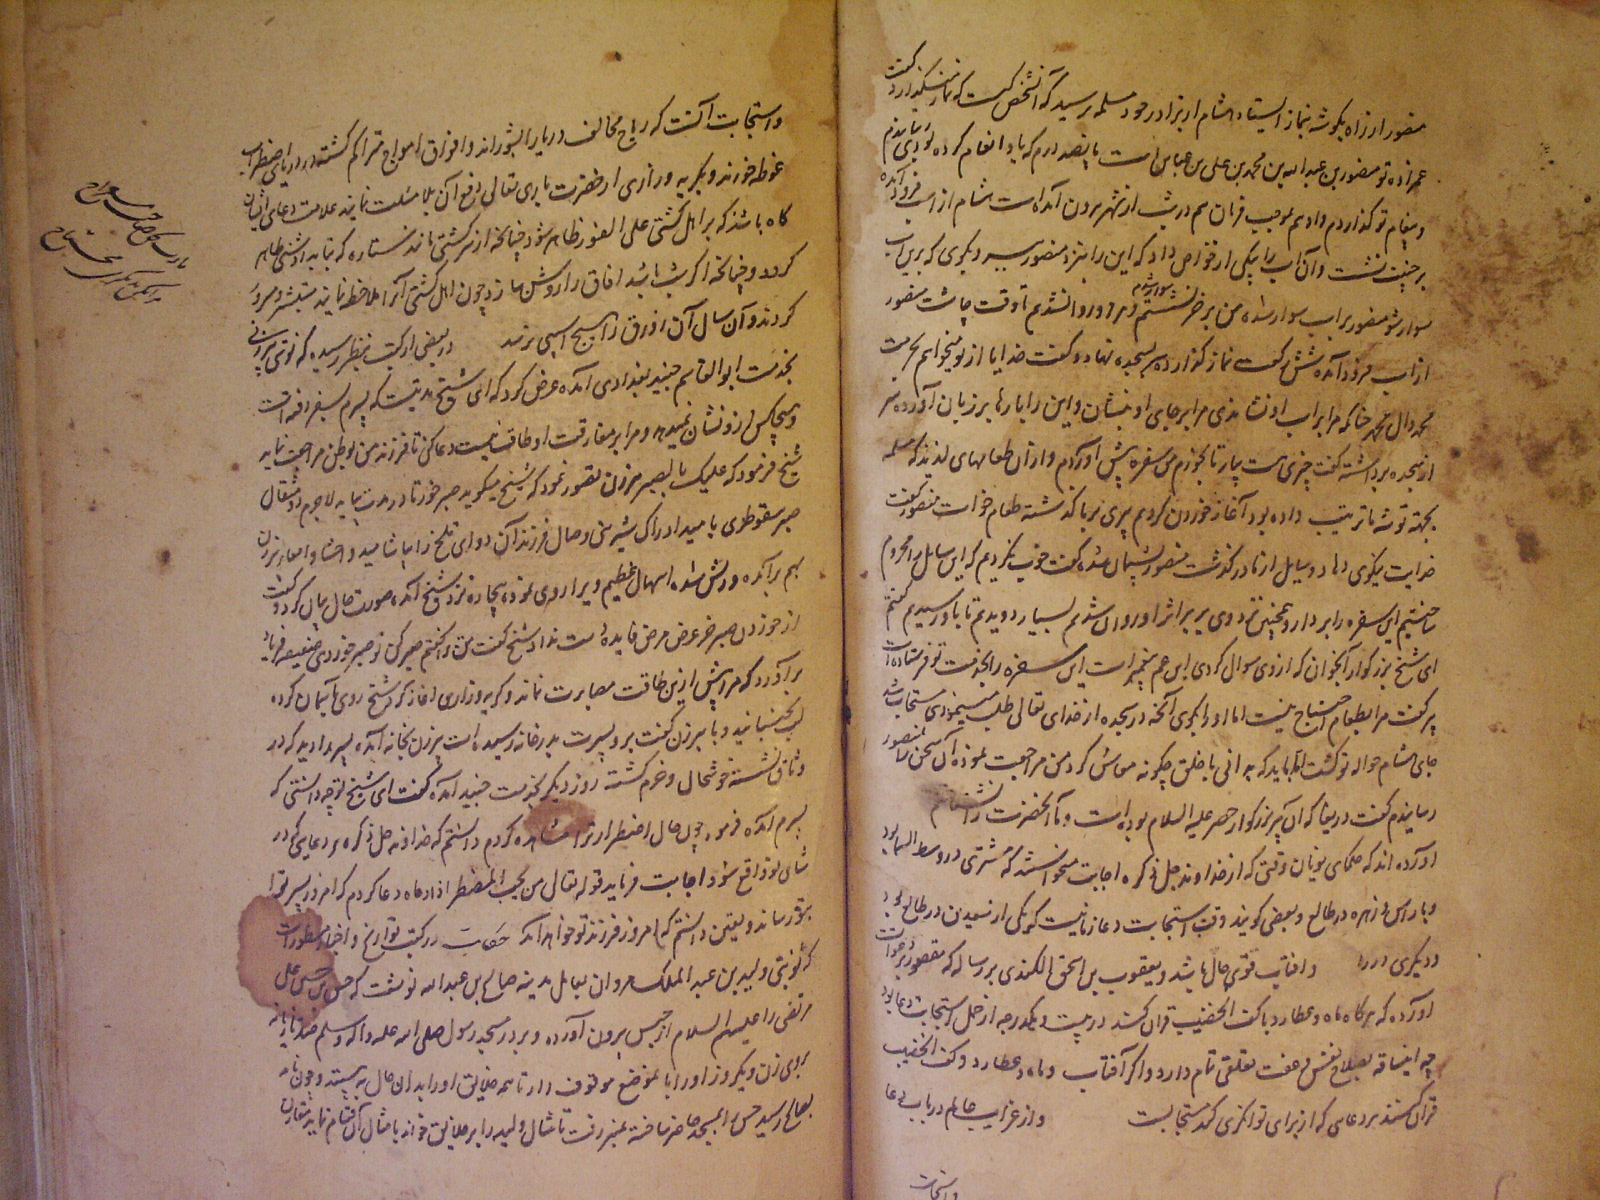 منصور از راه بگوشه نماز ایستاد هشام او را بدید در خود مسلمه پرسید که آن شخص کیست که نماز میگذارد گفت
عم زاده تو منصور بن عبد الله بن محمد بن علی بن عباس است پانصد درم که باد انعام کرده بودی رسانیدم
و پیغام تو گذاردم و ادهم بموجب فرمان هم در شب از شهر بیرون آمده است هشام از اسب فرود آمده
بر جنیبت نشست و آن اسب را بیکی از خواص داد که این را نزد منصور ببر و بگوی که برین اسب
سوار شو منصور بر اسب سوار شده من بر خر نشستم و هر دو روان شدیم تا وقت چاشت منصور
از اسب فرود آمده شش رکعت نماز گذارده سر بسجده نهاد و گفت خدایا از تو میخواهم بحرمت
محمد و آل محمد چنانکه مرا بر اسب او نشاندی مرا بر جای او بنشان و این را بارها بر زبان آورده سر
از سجده برداشته گفت چیزی هست بیار تا بخوریم من سفره پیش آوردم و از آن طعامهای لذیذ که مسلمه
بجهة توشه ما ترتیب داده بود آغاز خوردن کردیم پیری بر ما گذشته طعام خواست منصور گفت
خدایت نیکوی دهاد و سایل از ما در گذشت منصور پشیمان شده گفت خوب نکردیم که این سایل را محروم
ساختیم این سفره را بردار و همچنین نزد وی بر بر اثر او روان شدیم بسیار دویدم تا باو رسیدم گفتم
ای شیخ بزرگوار آنجوان که از وی سوال کردی ابن عم پیغمبر است این سفره را بخدمت تو فرستاده است
پیر گفت مرا بطعام احتیاج نیست اما او را بگوی آنچه در سجده از خدای تعالی طلب مینمودی مستجاب شد
جای هشام حواله تو گشت اما باید که بدانی با خلق چگونه معاش کرد من مراجعت نموده آن سخن را بمنصور
رسانیدم گفت دریغا که آن پیر بزرگوار خضر علیه السلام بوده است و ما آنحضرت را نشناختیم
آورده اند که حکمای یونان وقتی که از خداوند جل ذکره اجابت میخواستند که مشتری در وسط السما بود
و با راس و زهره در طالع و بعضی گویند وقت استجابت دعا زمانیست که یکی از سعدین در طالع بود
و دیگری در و آفتاب قوی حال باشد و یعقوب بن اسحق الکندی بر رساله که مقصور بر دعوات
آورده که هر گاه ماه و عطارد با کف الخضیب قران کنند در بیست و یکدرجه از حمل استجابت دعا بود
چه اینساعة بصلاح نفس و عفت تعلقی تمام دارد و اگر آفتاب و ماه و عطارد و کف الخضیب
قران کنند هر دعای که از برای توانگری کند مستجابست و از غرایب عالم در باب دعا
و استجابت
و استجابت آنست که ریاح مخالف دریا را بشوراند و افواق امواج متراکم گشته در دریای اضطراب
غوطه خورند و بگریه و زاری از حضرت باری تعالی رفع آن بلا مسئلت نمایند علامت دعای ایشان
گاه باشد که بر اهل کشتی علی الفور ظاهر شود چنانچه از سر کشتی مانند ستاره که بتابد روشنی ظاهر
گردد و چنانچه اگر شب باشد افاق را روشن سازد چون اهل کشتی آنرا ملاحظه نمایند مستبشر و مسرور
گردند و آن سال آن ازرق را هیچ آسیبی نرسد در بعضی از کتب بنظر رسیده که نوبتی پیرزنی
بخدمت ابو القاسم جنید بغدادی آمده عرض کرد که ای شیخ مدتیست که پسرم بسفر رفته است
و هیچکس از و نشان نمیدهد و مرا بر مفارقت او طاقت نیست دعا کن تا فرزند من بوطن مراجعت نماید
شیخ فرمود که علیک بالصبر پیرزن تصور نمود که شیخ میگوید صبر خور تا فرزندت بیاید لاجرم ده مثقال
صبر سقوطری بامید ادراک شیرینی وصال فرزند آن دوای تلخ را بیاشامید و احشا و امعاء پیرزن
بهم برآمده و ریش شده اسهال عظیم ویرا روی نموده بیچاره نزد شیخ آمده صورت حال بیان کرد و گفت
از خوردن صبر جز عرض مرض فایده دست نداد شیخ گفت من ترا گفتم صبر کن تو صبر خوردی ضعیفه فریاد
برآورد که مرا بیش ازین طاقت مصابرت نماند و گریه و زاری اغاز کرد شیخ روی بآسمان کرده
لب بجنبانید و با پیرزن گفت برو پسرت بدر خانه رسیده است پیرزن بخانه آمده پسر را دید که در
وثاق نشسته خوشحال و خرم گشته روز دیگر بخدمت جنید آمده گفت ای شیخ تو چه دانستی که
پسرم آمده فرمود چون حال اضطرار ترا مشاهده کردم دانستم که خداوند جل ذکره هر دعای که در
شان تو واقع شود اجابت فرماید قوله تعالی امن یجیب المضطر اذا دعاه دعا کردم که امروز پسر ترا
بتو رساند و یقین دانستم که امروز فرزند تو خواهد آمد حکایت در کتب تواریخ و اخبار مسطور است
که نوبتی ولید بن عبد الملک مروان بعامل مدینه صالح بن عبد الله نوشت که حسن بن حسن علی
مرتضی را علیهم السلام از حبس بیرون آورده و بر در مسجد رسول صلی الله علیه و اله و سلم صد تازیانه
بروی زن و یکروز او را با بموضع موقوف دار تا همه خلایق او را بدان حال به بینند و چون نامه
بصالح رسید حسن را بمسجد حاضر ساخته بمنبر رفت تا مثال ولید را بر خلایق خواند با مثال آن قیام نماید مقارن